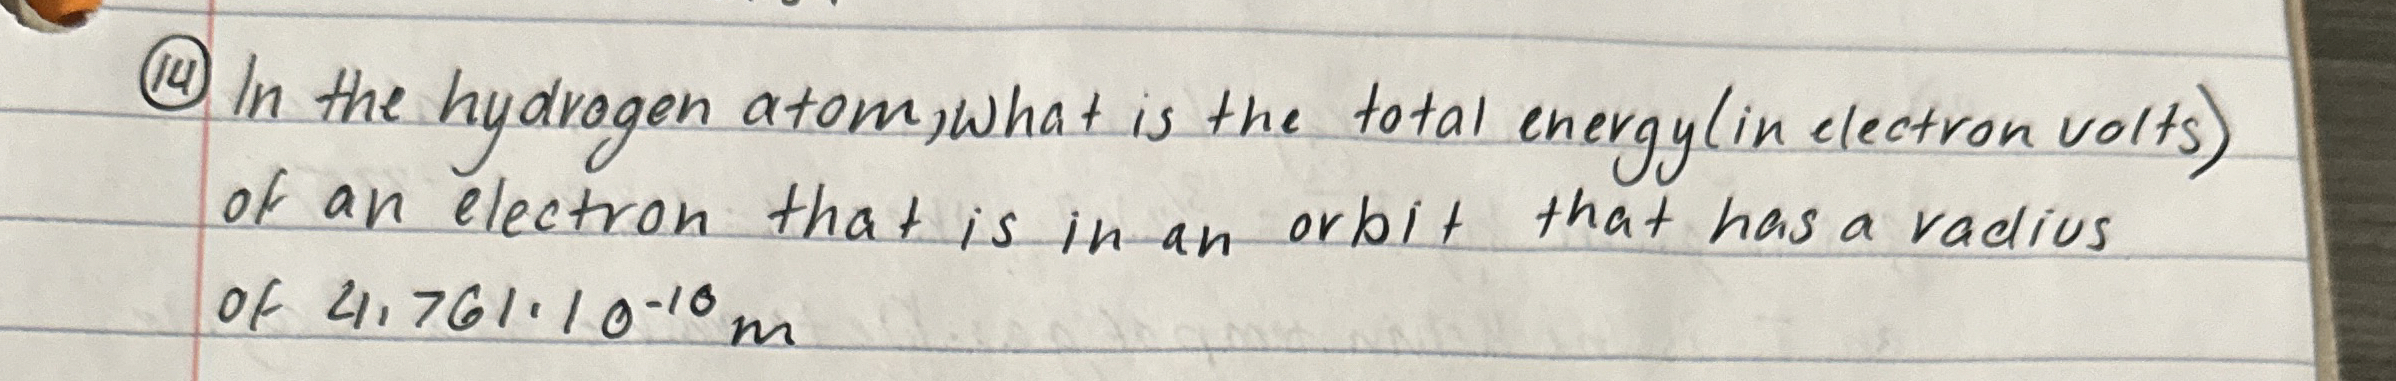 (14) In the hydrogen atom, what is the total energy (in electron volts)
of an electron that is in an orbit that has a radius
of 4.761·10⁻¹⁰ m